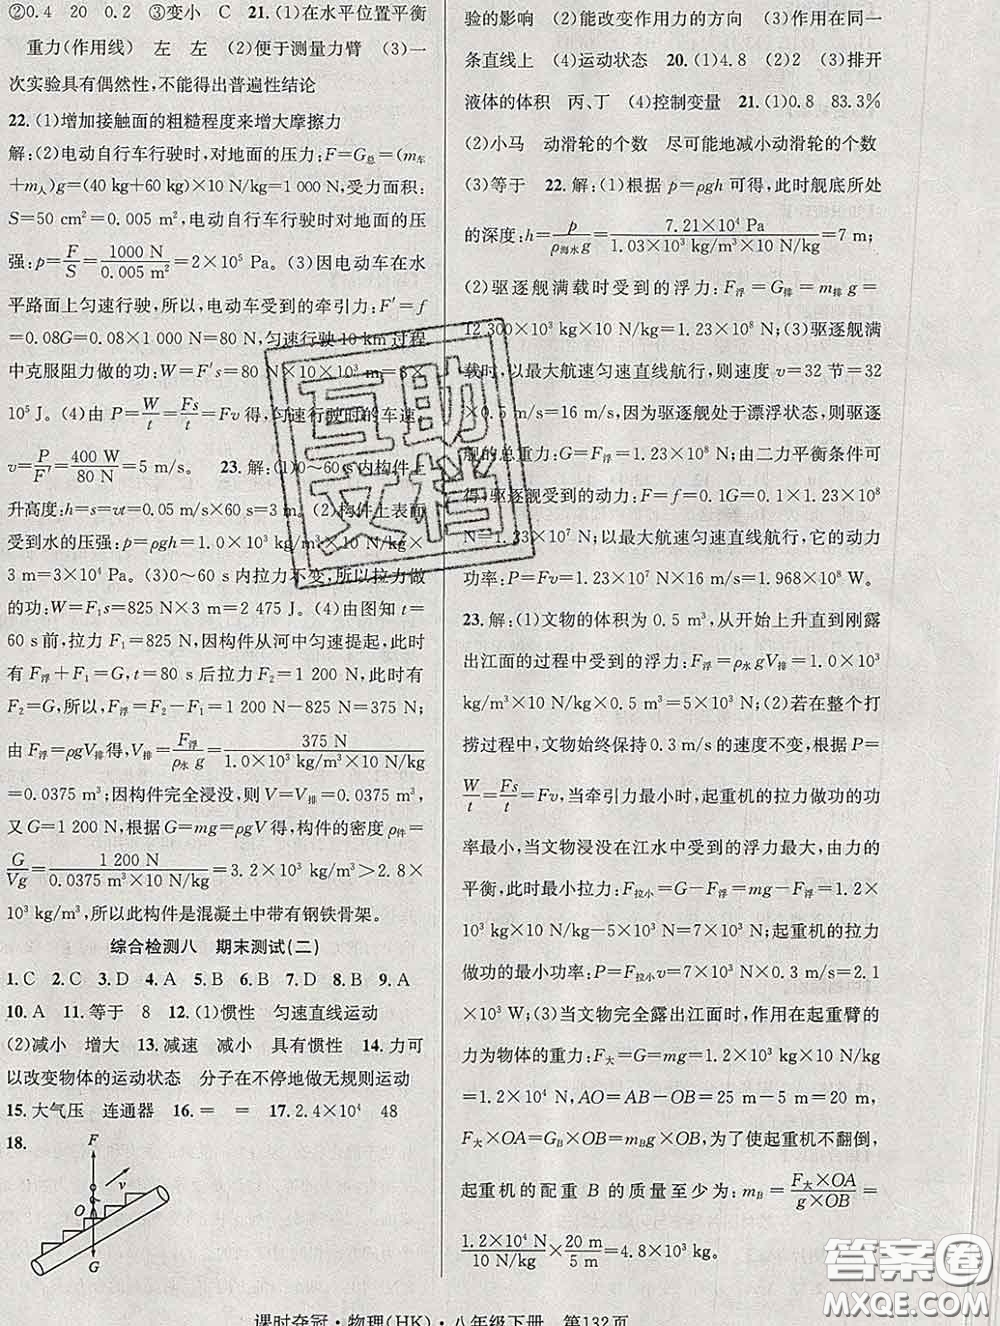 ②0.4　20　0.2　③变小　C　21.(1)在水平位置平衡
重力(作用线)　左　左　(2)便于测量力臂　(3)一
次实验具有偶然性,不能得出普遍性结论
22.(1)增加接触面的粗糙程度来增大摩擦力
解:(2)电动自行车行驶时,对地面的压力:F=G总=(m车
+m人)g=(40 kg+60 kg)×10 N/kg=1 000 N,受力面积:
S=50 cm²=0.005 m²,电动自行车行驶时对地面的压
强:p=F/S=1000 N/0.005 m²=2×10⁵ Pa。(3)因电动车在水
平路面上匀速行驶,所以,电动车受到的牵引力:F′=f
=0.08G=0.08×1 000 N=80 N,匀速行驶10 km过程
中克服阻力做的功:W=F′s=80 N×10×10³ m=8×
10⁵ J。(4)由 P=W/t=Fs/t=Fv 得,匀速行驶时的车速:
v=P/F′=400 W/80 N=5 m/s。　23.解:(1)0~60 s内构件上
升高度:h=s=vt=0.05 m/s×60 s=3 m。(2)构件上表面
受到水的压强:p=ρgh=1.0×10³ kg/m³×10 N/kg×
3 m=3×10⁴ Pa。(3)0~60 s内拉力不变,所以拉力做
的功:W=F₁s=825 N×3 m=2 475 J。(4)由图知 t=
60 s前,拉力 F₁=825 N,因构件从河中匀速提起,此时
有 F浮+F₁=G,t=80 s后拉力 F₂=1 200 N,此时有
F₂=G,所以,F浮=F₂-F₁=1 200 N-825 N=375 N,
由 F浮=ρgV排得,V排=F浮/ρ水 g=375 N/1.0×10³ kg/m³×10 N/kg
=0.0375 m³;因构件完全浸没,则 V=V排=0.0375 m³,
又 G=1 200 N,根据 G=mg=ρgV 得,构件的密度 ρ件=
G/Vg=1 200 N/0.0375 m³×10 N/kg=3.2×10³ kg/m³>2.8×
10³ kg/m³,所以此构件是混凝土中带有钢铁骨架。
综合检测八　期末测试(二)
1.C　2.C　3.D　4.A　5.B　6.B　7.D　8.B　9.A
10.A　11.等于　8　12.(1)惯性　匀速直线运动
(2)减小　增大　13.减速　减小　具有惯性　14.力可
以改变物体的运动状态　分子在不停地做无规则运动
15.大气压　连通器　16.=　=　17.2.4×10⁴　48
18.
F
v
O
G
验的影响　(2)能改变作用力的方向　(3)作用在同一
条直线上　(4)运动状态　20.(1)4.8　(2)2　(3)排开
液体的体积　丙、丁　(4)控制变量　21.(1)0.8　83.3%
(2)小马　动滑轮的个数　尽可能地减小动滑轮的个数
(3)等于　22.解:(1)根据 p=ρgh 可得,此时舰底所处
的深度:h=p/ρ海水 g=7.21×10⁴ Pa/1.03×10³ kg/m³×10 N/kg=7 m;
(2)驱逐舰满载时受到的浮力:F浮=G排=m排 g=
12 300×10³ kg×10 N/kg=1.23×10⁸ N;(3)驱逐舰满
载时,以最大航速匀速直线航行,则速度 v=32 节=32
×0.5 m/s=16 m/s,因为驱逐舰处于漂浮状态,则驱逐
舰的总重力:G=F浮=1.23×10⁸ N;由二力平衡条件可
得,驱逐舰受到的动力:F=f=0.1G=0.1×1.23×10⁸
N=1.23×10⁷ N;以最大航速匀速直线航行,它的动力
功率:P=Fv=1.23×10⁷ N×16 m/s=1.968×10⁸ W。
23.解:(1)文物的体积为 0.5 m³,从开始上升直到刚露
出江面的过程中受到的浮力:F浮=ρ水gV排=1.0×10³
kg/m³×10 N/kg×0.5 m³=5×10³ N;(2)若在整个打
捞过程中,文物始终保持 0.3 m/s 的速度不变,根据 P=
W/t=Fs/t=Fv,当牵引力最小时,起重机的拉力做功的功
率最小,当文物浸没在江水中受到的浮力最大,由力的
平衡,此时最小拉力:F拉小=G-F浮=mg-F浮=1.2×
10³ kg×10 N/kg-5×10³ N=7×10³ N,起重机的拉力
做功的最小功率:P=F拉小v=7×10³ N×0.3 m/s=2.1
×10³ W;(3)当文物完全露出江面时,作用在起重臂的
力为物体的重力:F大=G=mg=1.2×10³ kg×10 N/kg
=1.2×10⁴ N,AO=AB-OB=25 m-5 m=20 m,
F大×OA=GB×OB=mBg×OB,为了使起重机不翻倒,
起重机的配重 B 的质量至少为:mB=F大×OA/g×OB=
1.2×10⁴ N/10 N/kg×20 m/5 m=4.8×10³ kg。
互助
文档
答案卷
MXQE.COM
课时夺冠·物理(HK)·八年级下册　第132页